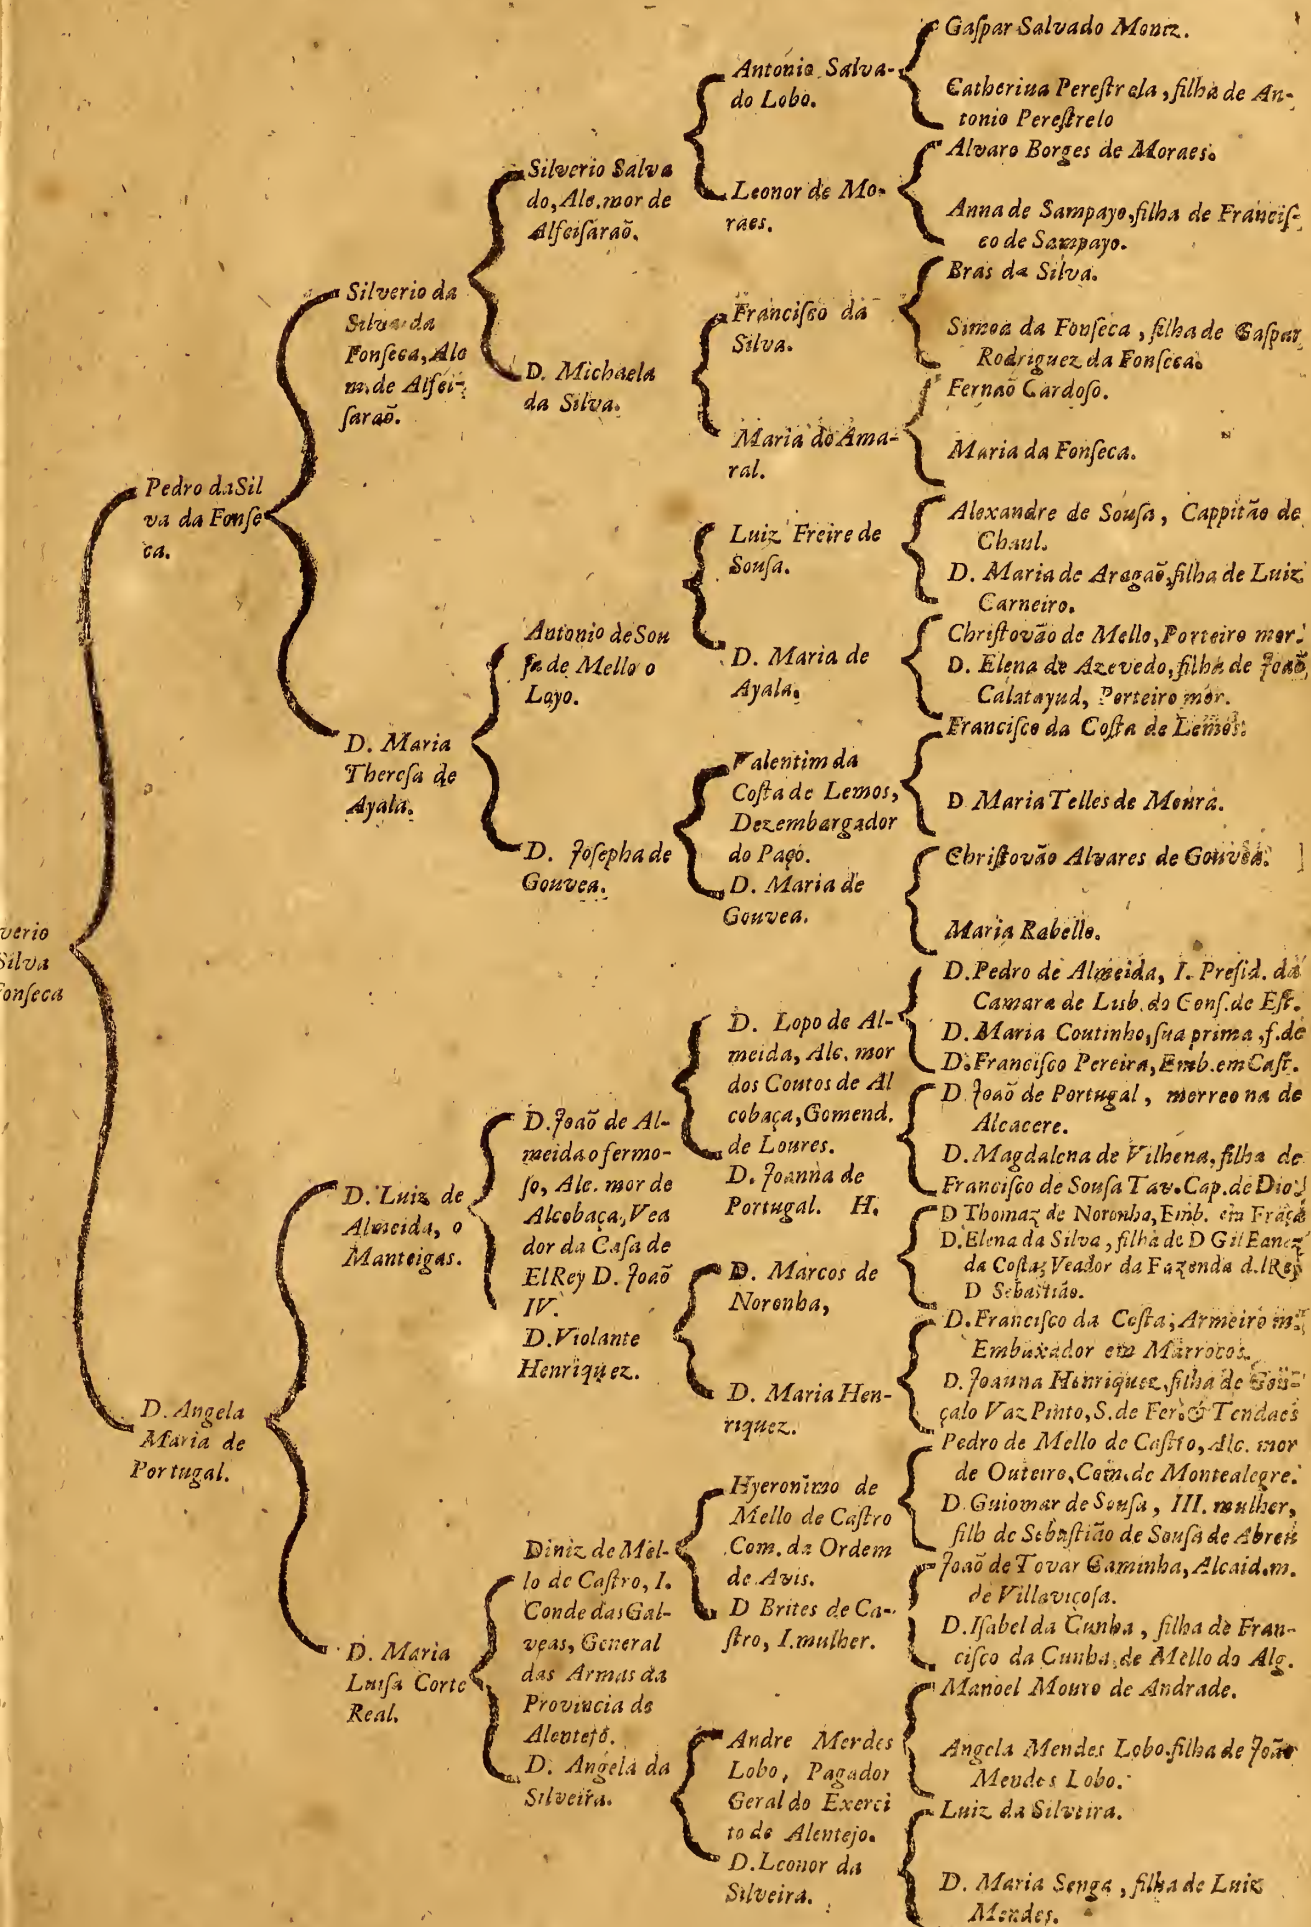 verio
Silva
onseca
Pedro da Sil
va da Fonse
ca.
D. Angela
Maria de
Portugal.
Silverio da
Silva da
Fonseca, Alc
m. de Alfei-
ſaraõ.
D. Maria
Thereſa de
Ayala.
D. Luiz de
Almeida, o
Manteigas.
D. Maria
Luiſa Corte
Real.
Silverio Salva
do, Alc. mor de
Alfeiſaraõ.
D. Michaela
da Silva.
Antonio de Sou
ſa de Mello o
Loyo.
D. Joſepha de
Gouvea.
D. Joaõ de Al-
meida o fermo-
ſo, Alc. mor de
Alcobaça, Vea
dor da Caſa de
ElRey D. Joaõ
IV.
D. Violante
Henriquez.
Diniz de Mel-
lo de Caſtro, I.
Conde das Gal-
veas, General
das Armas da
Provincia de
Alentejo.
D. Angela da
Silveira.
Antonio Salva-
do Lobo.
Leonor de Mo-
raes.
Franciſco da
Silva.
Maria do Ama-
ral.
Luiz Freire de
Souſa.
D. Maria de
Ayala.
Valentim da
Coſta de Lemos,
Dezembargador
do Paço.
D. Maria de
Gouvea.
D. Lopo de Al-
meida, Alc. mor
dos Coutos de Al
cobaça, Comend.
de Loures.
D. Joanna de
Portugal. H.
D. Marcos de
Noronha,
D. Maria Hen-
riquez.
Hyeronimo de
Mello de Caſtro
Com. da Ordem
de Avis.
D Brites de Ca-
ſtro, I. mulher.
Andre Merdes
Lobo, Pagador
Geral do Exerci
to de Alentejo.
D. Leonor da
Silveira.
Gaſpar Salvado Moniz.
Catherina Pereſtrela, filha de An-
tonio Pereſtrelo
Alvaro Borges de Moraes.
Anna de Sampayo, filha de Franciſ-
co de Sampayo.
Bras da Silva.
Simoa da Fonſeca, filha de Gaſpar
Rodriguez da Fonſeca.
Fernaõ Cardoſo.
Maria da Fonſeca.
Alexandre de Souſa, Cappitão de
Chaul.
D. Maria de Aragaõ, filha de Luiz
Carneiro.
Chriſtovão de Mello, Porteiro mor.
D. Elena de Azevedo, filha de Joaõ
Calatayud, Porteiro mor.
Franciſco da Coſta de Lemos.
D Maria Telles de Moura.
Chriſtovão Alvares de Gouvea.
Maria Rabello.
D. Pedro de Almeida, I. Preſid. da
Camara de Lisb. do Conſ. de Eſt.
D. Maria Coutinho, ſua prima, f. de
D. Franciſco Pereira, Emb. em Caſt.
D. Joaõ de Portugal, morreo na de
Alcacere.
D. Magdalena de Vilhena, filha de
Franciſco de Souſa Tav. Cap. de Dio.
D Thomaz de Noronha, Emb. em Fraça
D. Elena da Silva, filha de D Gil Eanez
da Coſta, Veador da Fazenda d.lRey
D Sebaſtião.
D. Franciſco da Coſta, Armeiro m.
Embaxador em Marrocos.
D. Joanna Henriquez, filha de Gon-
çalo Vaz Pinto, S. de Fer. & Tendaes
Pedro de Mello de Caſtro, Alc. mor
de Outeiro, Com. de Montealegre.
D. Guiomar de Souſa, III. mulher,
filh de Sebaſtião de Souſa de Abreu
Joaõ de Tovar Caminha, Alcaid. m.
de Villaviçoſa.
D. Iſabel da Cunha, filha de Fran-
ciſco da Cunha, de Mello do Alg.
Manoel Mouro de Andrade.
Angela Mendes Lobo. filha de Joaõ
Mendes Lobo.
Luiz da Silveira.
D. Maria Senga, filha de Luiz
Mendes.